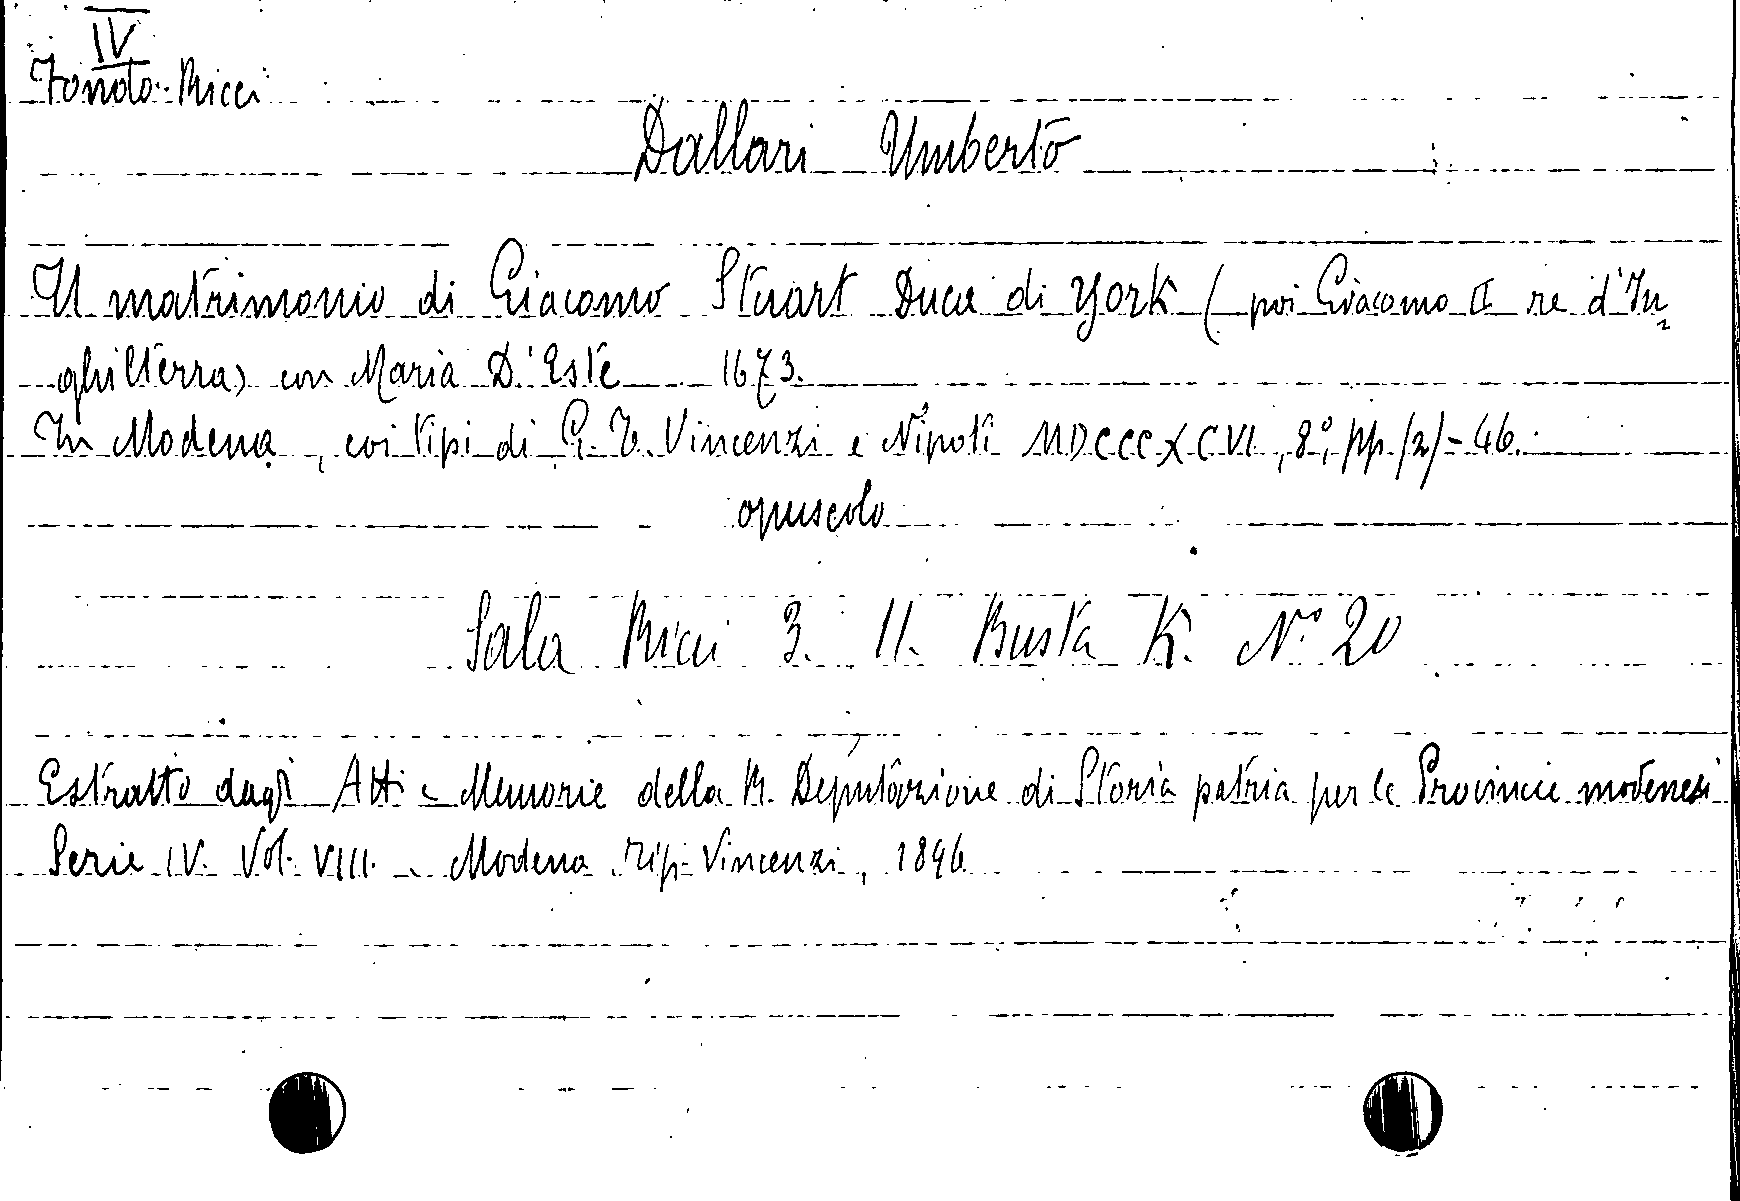 IV
Fondo Ricci
Dallari Umberto
Il matrimonio di Giacomo Stuart Duca di York ( poi Giacomo II re d'In
ghilterra) con Maria D'Este 1673.
In Modena, coi tipi di G. T. Vincenzi e Nipoti MDCCCXCVI, 8°, pp. /2/-46.
opuscolo
Sala Ricci 3. 11. Busta K. N° 20
Estratto dagli Atti e Memorie della R. Deputazione di Storia patria per le Provincie modenesi
Serie IV. Vol. VIII. Modena Tip. Vincenzi, 1896